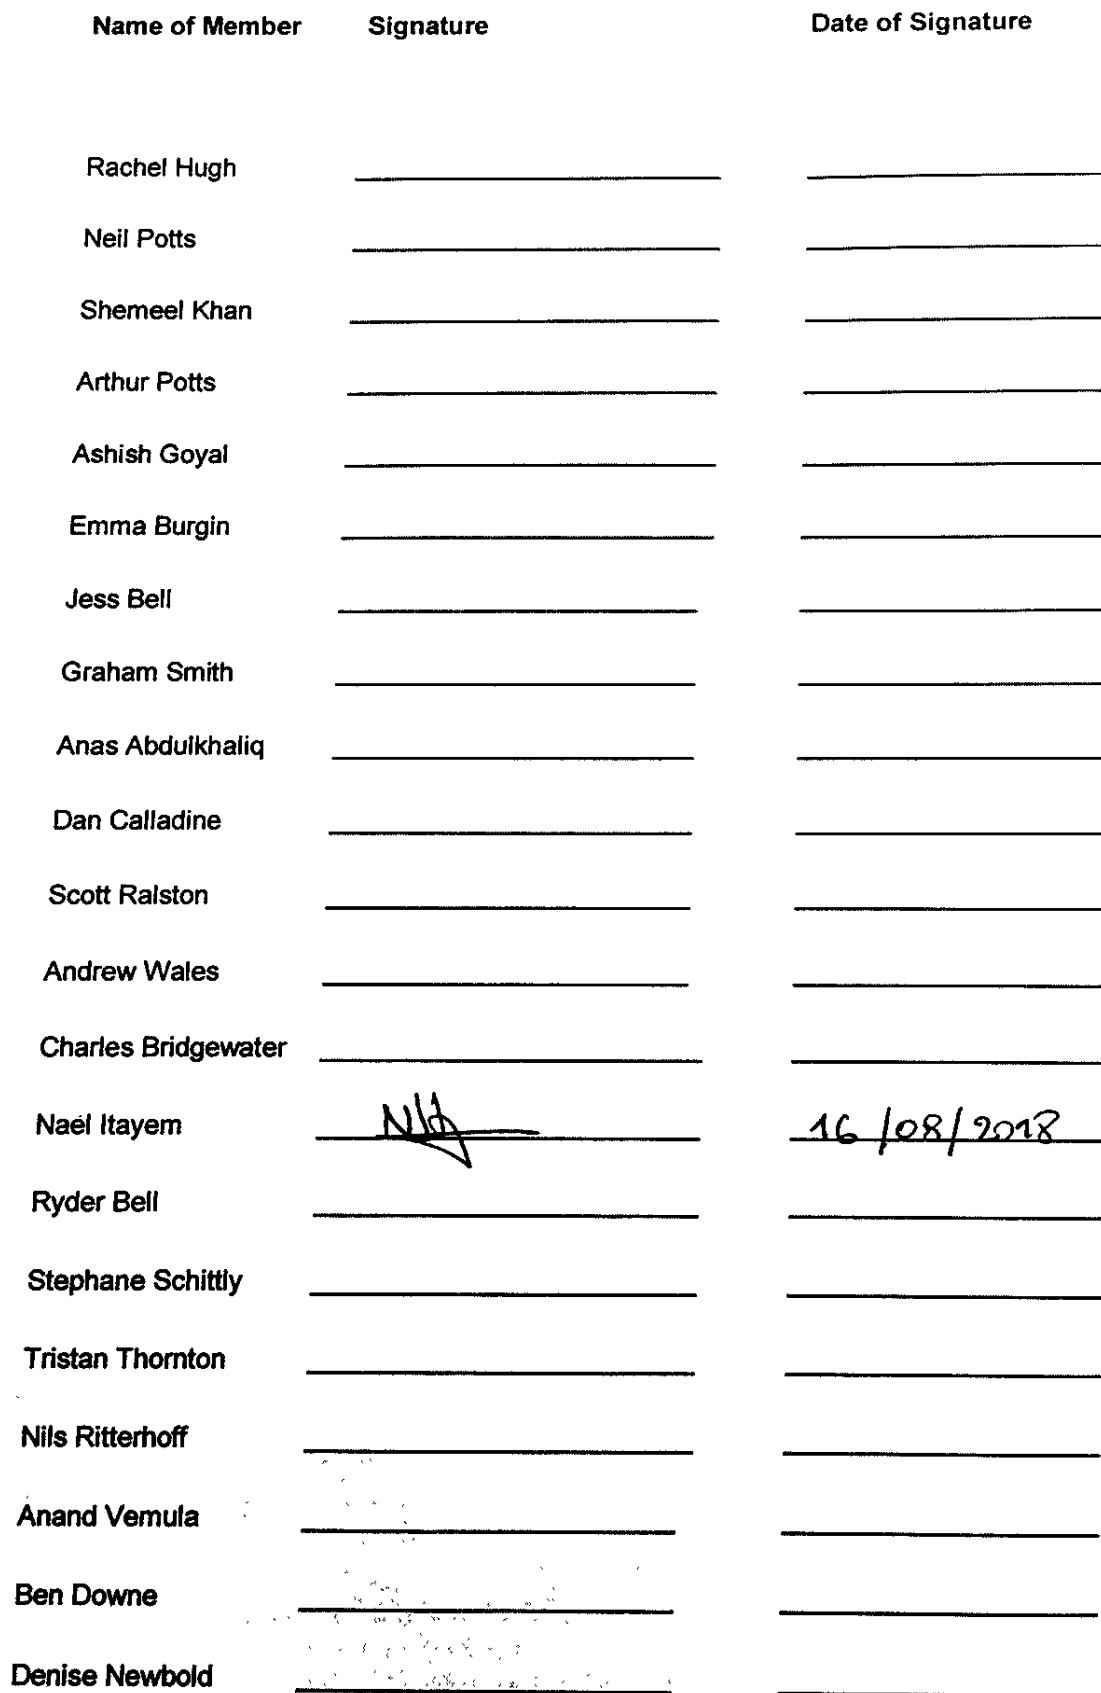 Name of Member Signature Date of Signature
Rachel Hugh
Neil Potts
Shemeel Khan
Arthur Potts
Ashish Goyal
Emma Burgin
Jess Bell
Graham Smith
Anas Abdulkhaliq
Dan Calladine
Scott Ralston
Andrew Wales
Charles Bridgewater
Naël Itayem 16/08/2018
Ryder Bell
Stephane Schittly
Tristan Thornton
Nils Ritterhoff
Anand Vemula
Ben Downe
Denise Newbold